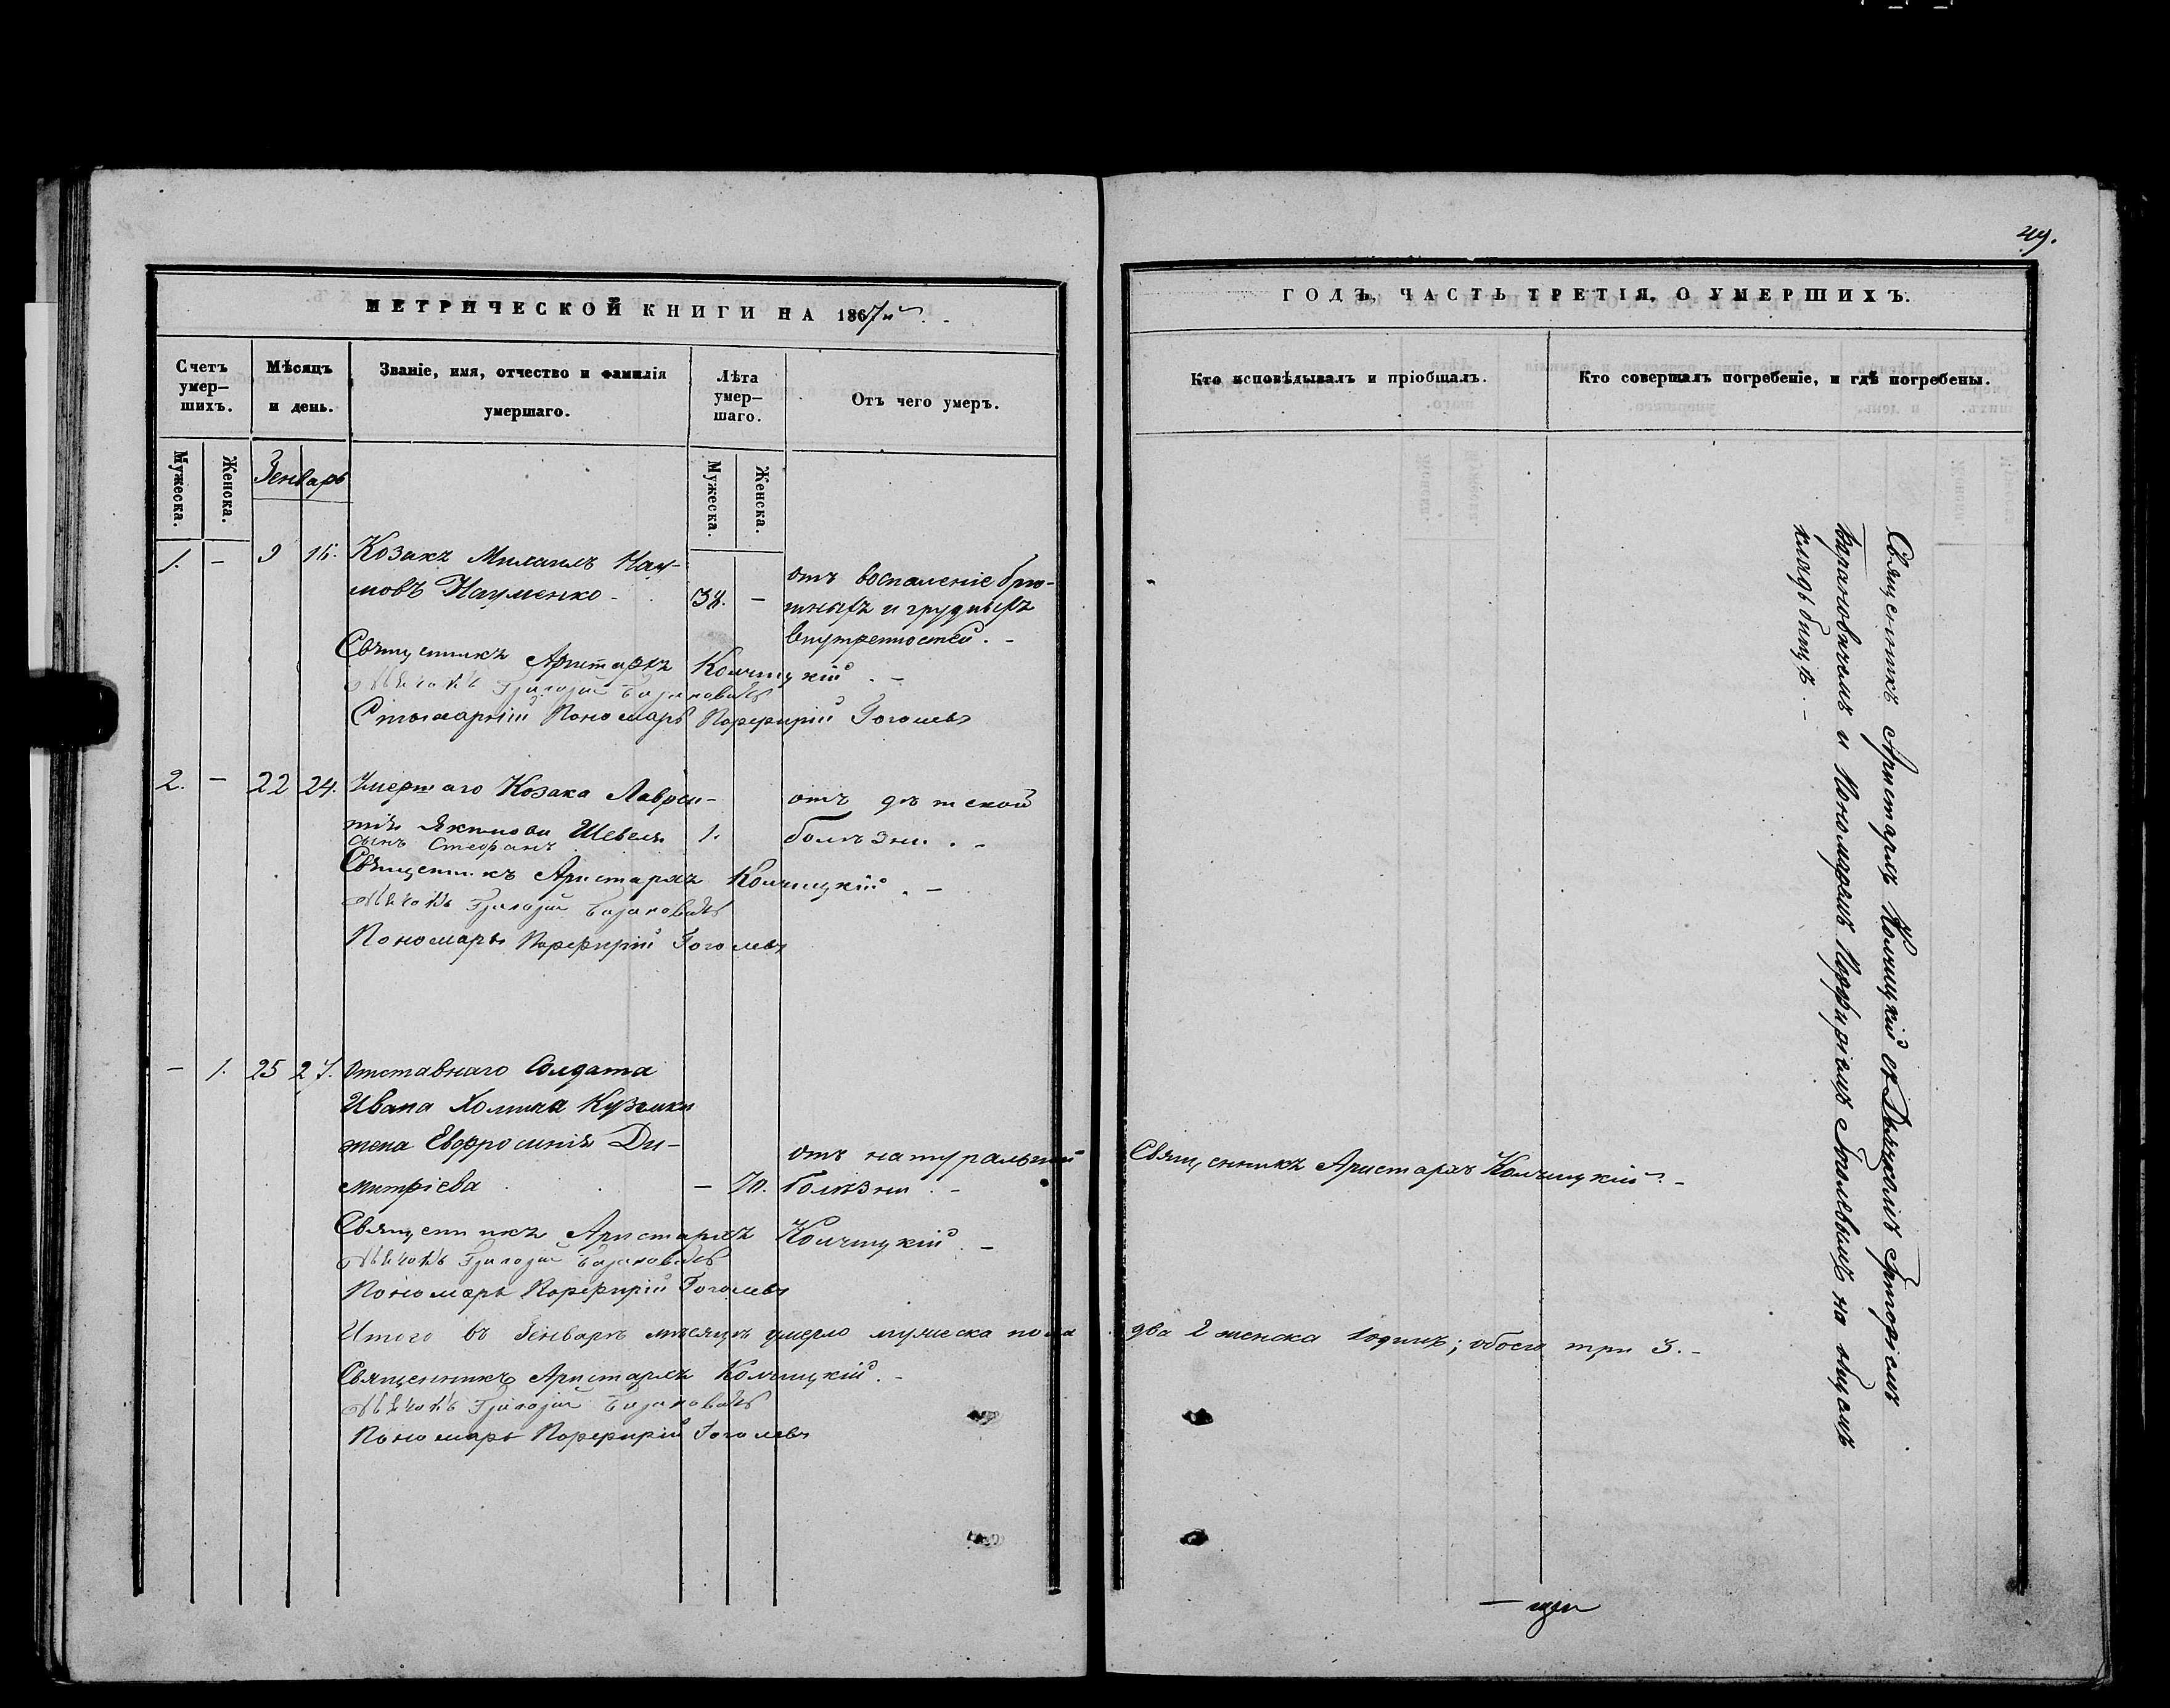 49.
МЕТРИЧЕСКОЙ КНИГИ НА 1867й
ГОДЪ, ЧАСТЬ ТРЕТІЯ, О УМЕРШИХЪ.
Счетъ умер–шихъ.
Мѣсяцъ и день.
Званіе, имя, отчество и фамилія умершаго.
Лѣта умер–шаго.
Отъ чего умеръ.
Кто исповѣдывалъ и пріобщалъ.
Кто совершалъ погребеніе, и гдѣ погребены.
Мужеска.
Женска.
Генварь
Мужеска.
Женска.
1. – 9 Козакъ Михаилъ Нау-
мовъ Науменко 38. –
отъ воспаленіе брю-
шныхъ и грудныхъ
внутренностей. –
Священникъ Аристархъ Колчицкій. –
Дьячокъ Григорій Барановичъ
Пономарь Порфирій Гоголевъ
2. – 22 24. Умершаго Козака Лаврен-
тія Якимова Шевеля 1.
сынъ Стефанъ
отъ дѣтской
болѣзни. –
Священникъ Аристархъ Колчицкій. –
Дьячокъ Григорій Барановичъ
Пономарь Порфирій Гоголевъ
– 1. 25 27. Отставнаго Солдата
Ивана Кузьмки
жена Евфросинія Ди-
митріева – 70.
отъ натуральной
болѣзни. –
Священникъ Аристархъ Колчицкій. –
Священникъ Аристархъ Колчицкій. –
Дьячокъ Григорій Барановичъ
Пономарь Порфирій Гоголевъ
Итого въ Генварѣ мѣсяцѣ умерло мужеска пола два 2 женска 1 одинъ; обоего три 3. –
Священникъ Аристархъ Колчицкій. –
Дьячокъ Григорій Барановичъ
Пономарь Порфирій Гоголевъ
Священникъ Аристархъ Колчицкій съ Дьячкомъ Григоріемъ
Барановичемъ и Пономаремъ Порфиріемъ Гоголевымъ на общемъ
кладбищѣ. –